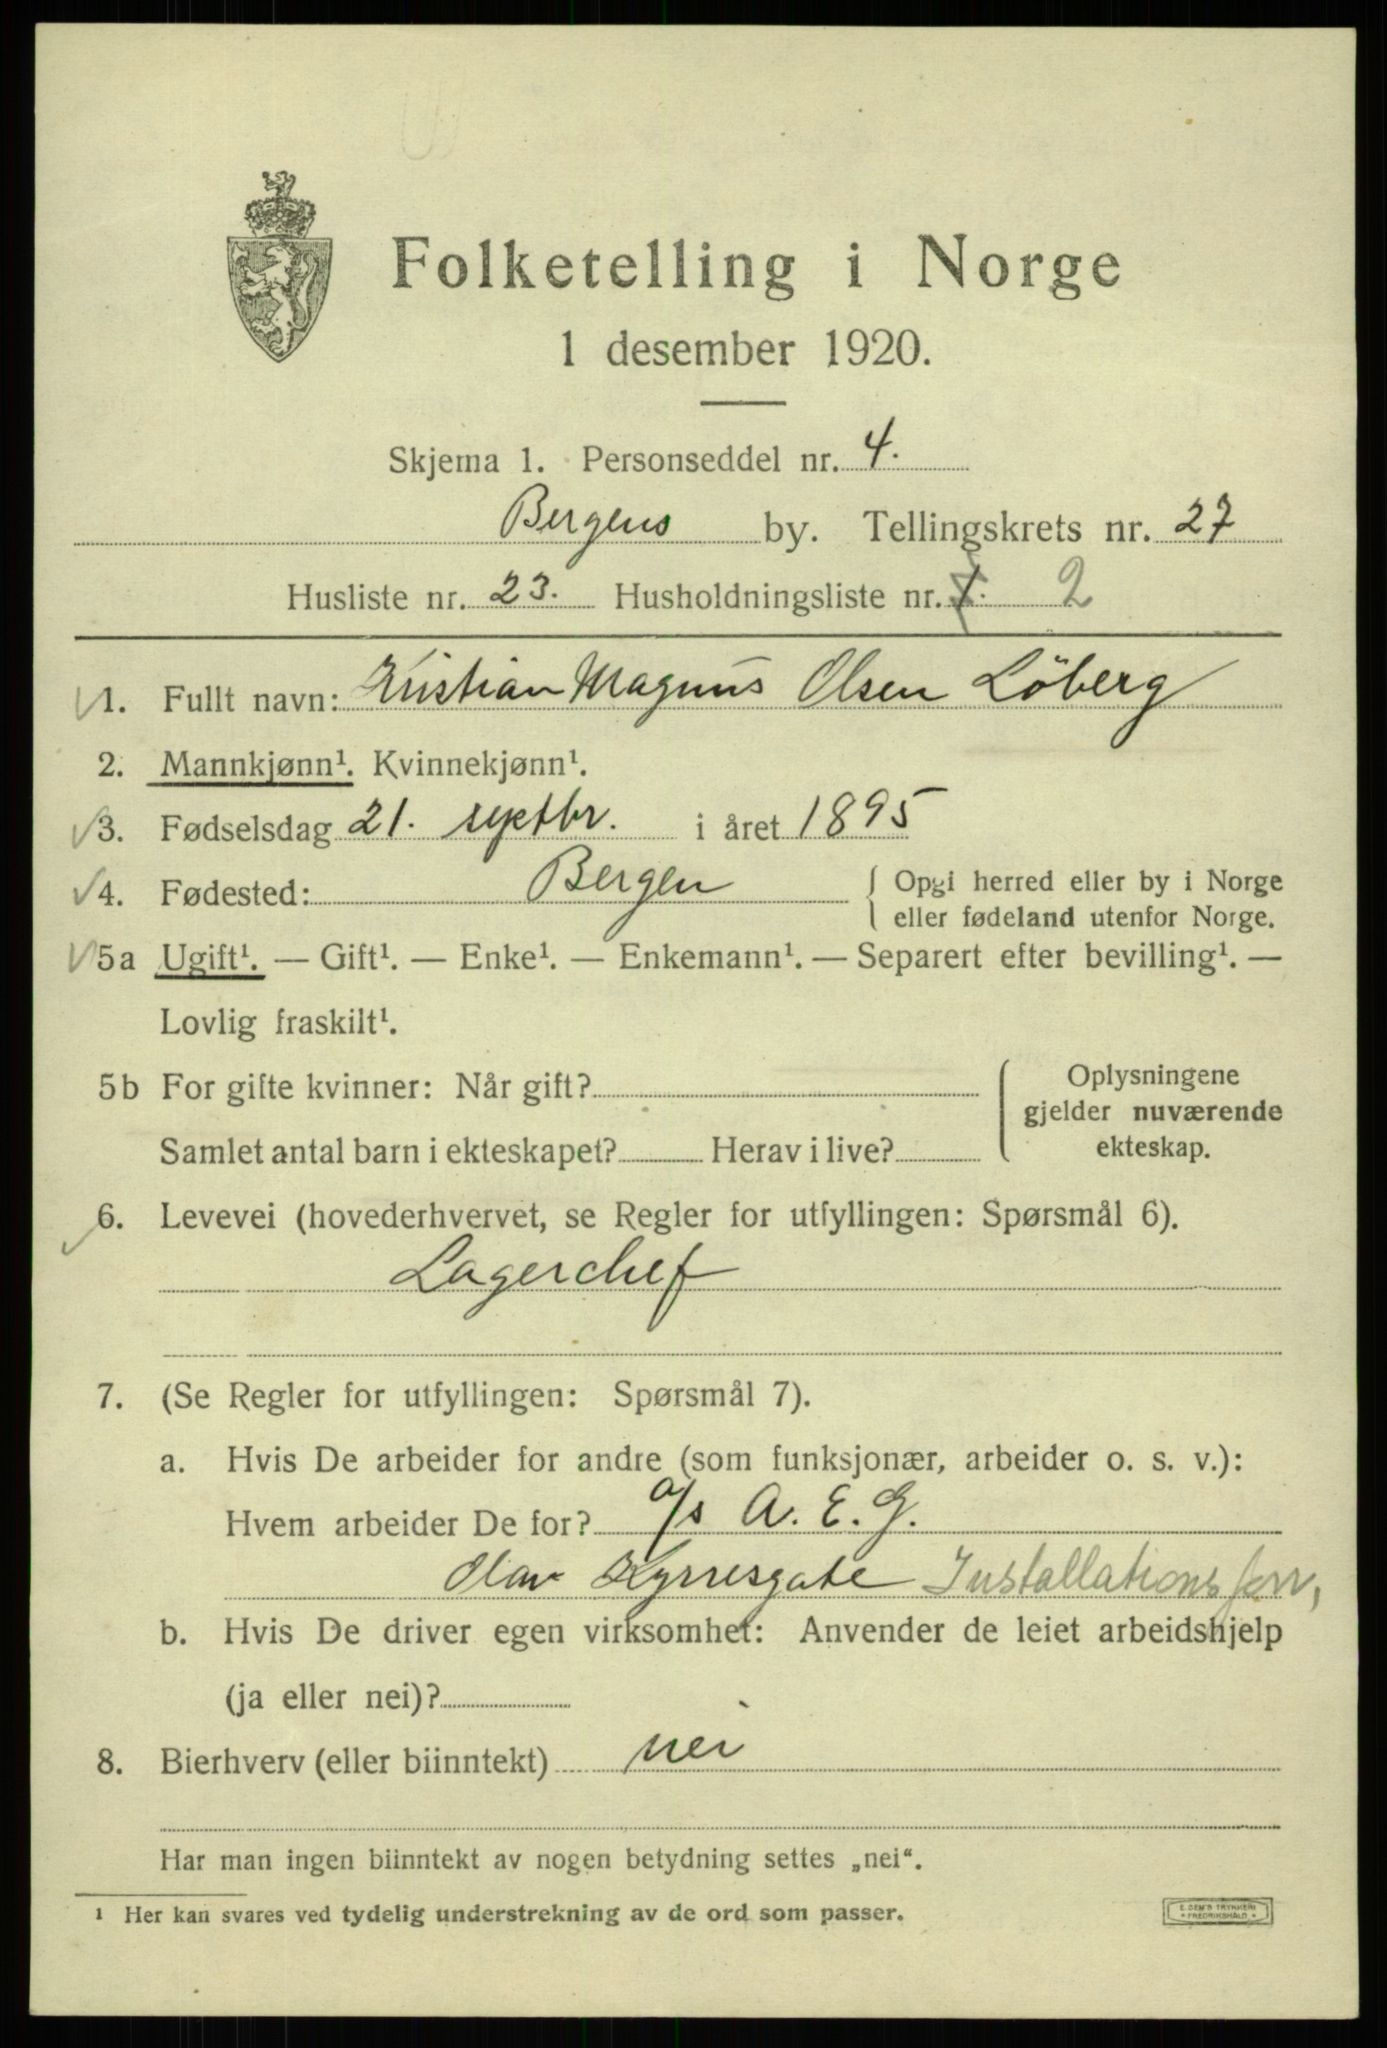 Folketelling i Norge
1 desember 1920.
Skjema 1. Personseddel nr. 4.
Bergens by. Tellingskrets nr. 27
Husliste nr. 23. Husholdningsliste nr. 1. 2
1. Fullt navn: Kristian Magnus Olsen Löberg
2. Mannkjønn¹. Kvinnekjønn¹.
3. Fødselsdag 21. septbr. i året 1895
4. Fødested: Bergen { Opgi herred eller by i Norge
eller fødeland utenfor Norge.
5a Ugift¹. — Gift¹. — Enke¹. — Enkemann¹. — Separert efter bevilling¹. —
Lovlig fraskilt¹.
5b For gifte kvinner: Når gift?
Samlet antal barn i ekteskapet? Herav i live?
Oplysningene
gjelder nuværende
ekteskap.
6. Levevei (hovederhvervet, se Regler for utfyllingen: Spørsmål 6).
Lagerchef
7. (Se Regler for utfyllingen: Spørsmål 7).
a. Hvis De arbeider for andre (som funksjonær, arbeider o. s. v.):
Hvem arbeider De for? a/s A. E. G.
Olav Kyrresgate Installationsforr,
b. Hvis De driver egen virksomhet: Anvender de leiet arbeidshjelp
(ja eller nei)?
8. Bierhverv (eller biinntekt) nei
Har man ingen biinntekt av nogen betydning settes „nei“.
¹ Her kan svares ved tydelig understrekning av de ord som passer.
E. SEM'S TRYKKERI
• FREDRIKSHALD •